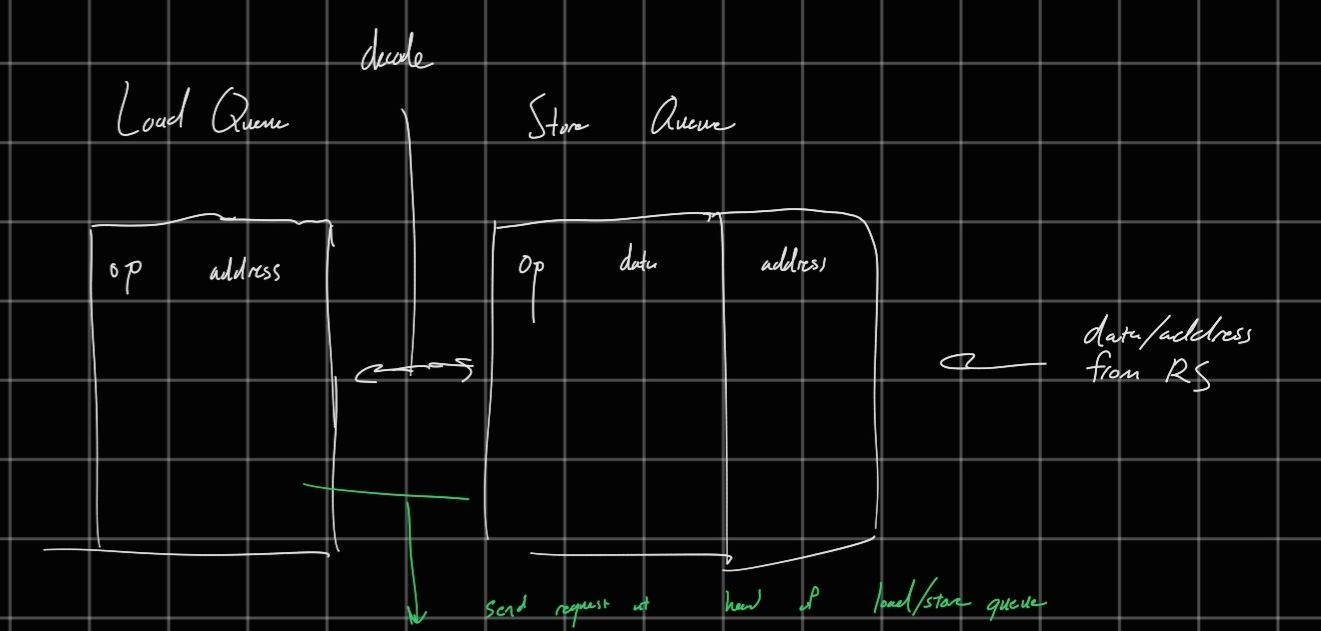 decode
Load Queue
Store Queue
op address
op data address
data/address
from RS
send request at head of load/store queue